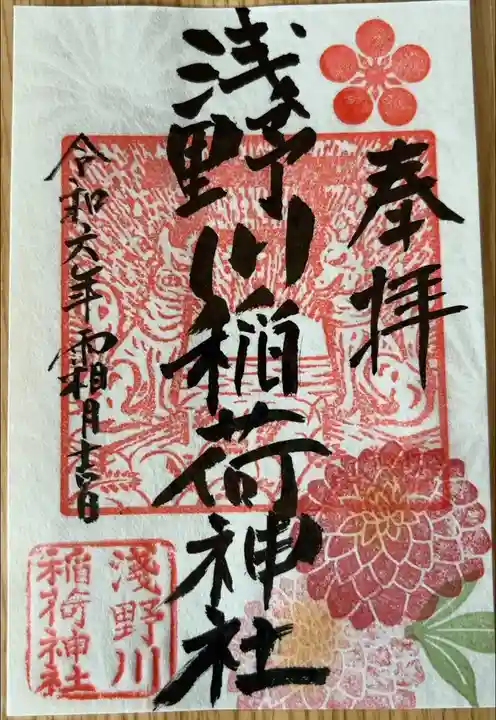 奉拝
浅野川稲荷神社
令和六年 霜月吉日
淺野川
稲荷神社